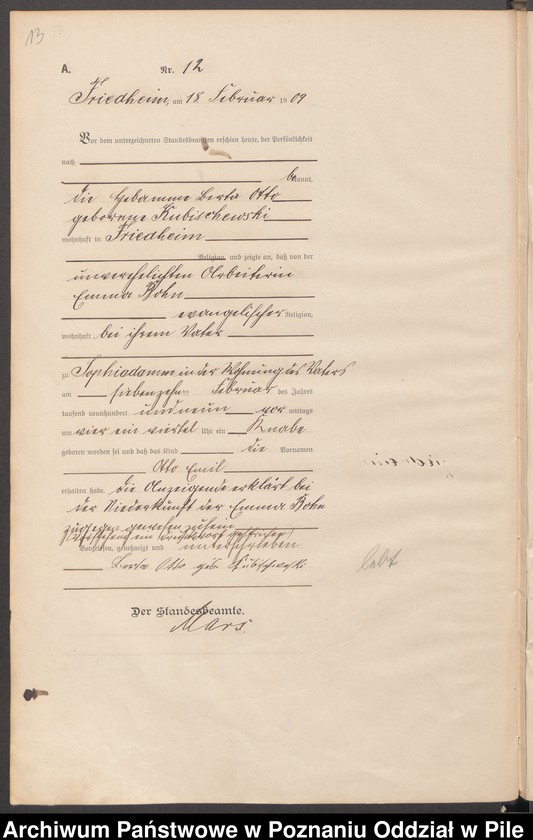 13
A.
Nr. 12
Friedheim, am 18 Februar 1909
Vor dem unterzeichneten Standesbeamten erschien heute, der Persönlichkeit
nach
bekannt,
die Hebamme Berta Otto
geborene Kubischewski
wohnhaft in Friedheim
Religion, und zeigte an, daß von der
unverehelichten Arbeiterin
Emma Rohn
evangelischer Religion,
wohnhaft bei ihrem Vater
zu Sophiadamm in der Wohnung des Vaters
am siebenzehn Februar des Jahres
tausend neunhundert und neun vor mittags
um vier ein viertel Uhr ein Knabe
geboren worden sei und daß das Kind die Vornamen
Otto Emil
erhalten habe. die Anzeigende erklärt bei
der Niederkunft der Emma Rohn
zugegen gewesen zu sein
(Vorstehend ein Druckwort gestrichen)
Vorgelesen, genehmigt und unterschrieben
Berta Otto geb. Kubischewski
lebt
Der Standesbeamte.
Mars.
Archiwum Państwowe w Poznaniu Oddział w Pile